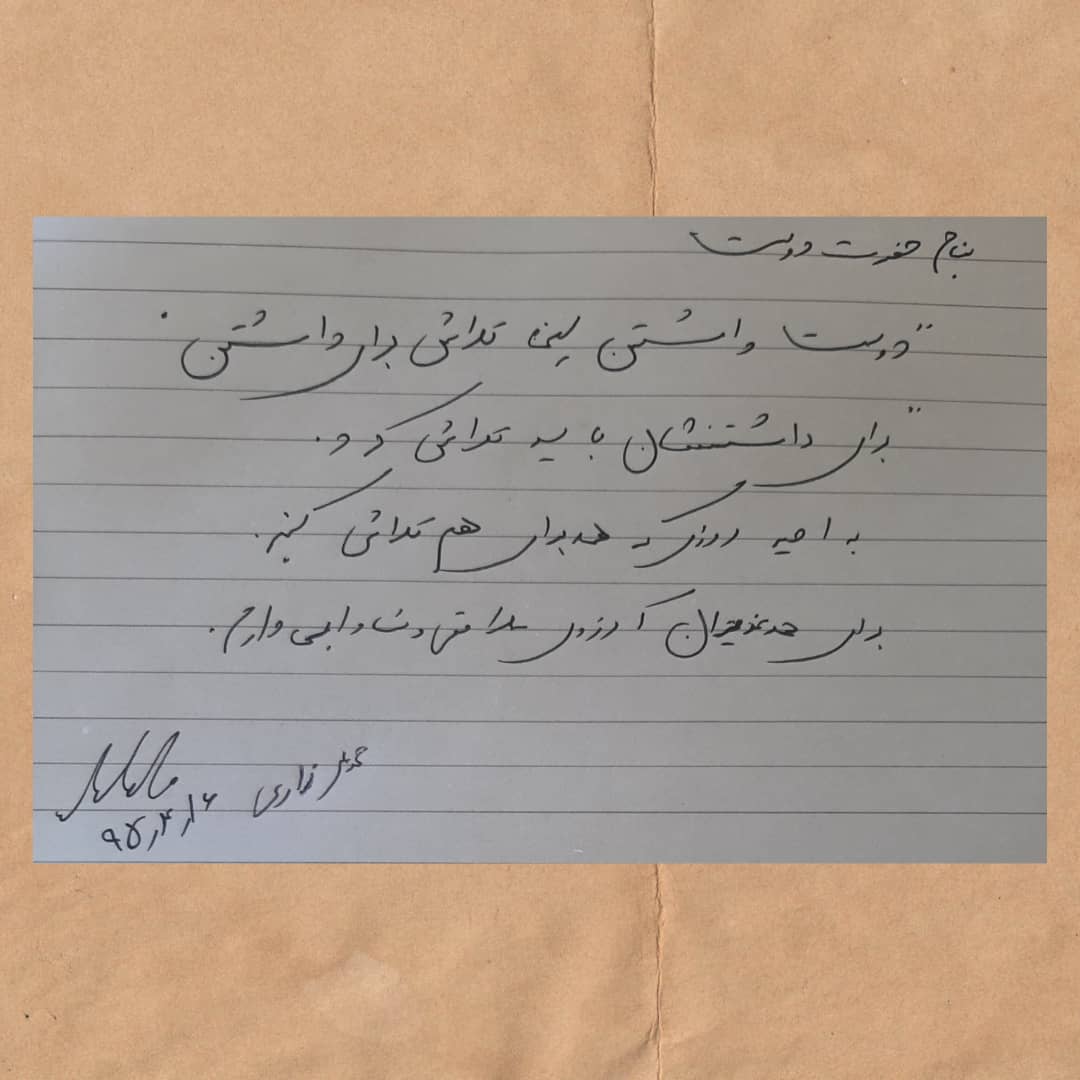 بنام حضرت دوست
"دوست داشتن یعنی تلاش برای داشتن.
"برای داشتنشان باید تلاش کرد.
به امید روزی که همه برای هم تلاش کنیم.
برای همه عزیزان آرزوی سلامتی و شادابی دارم.
زارعی
۹۵/۴/۱۶